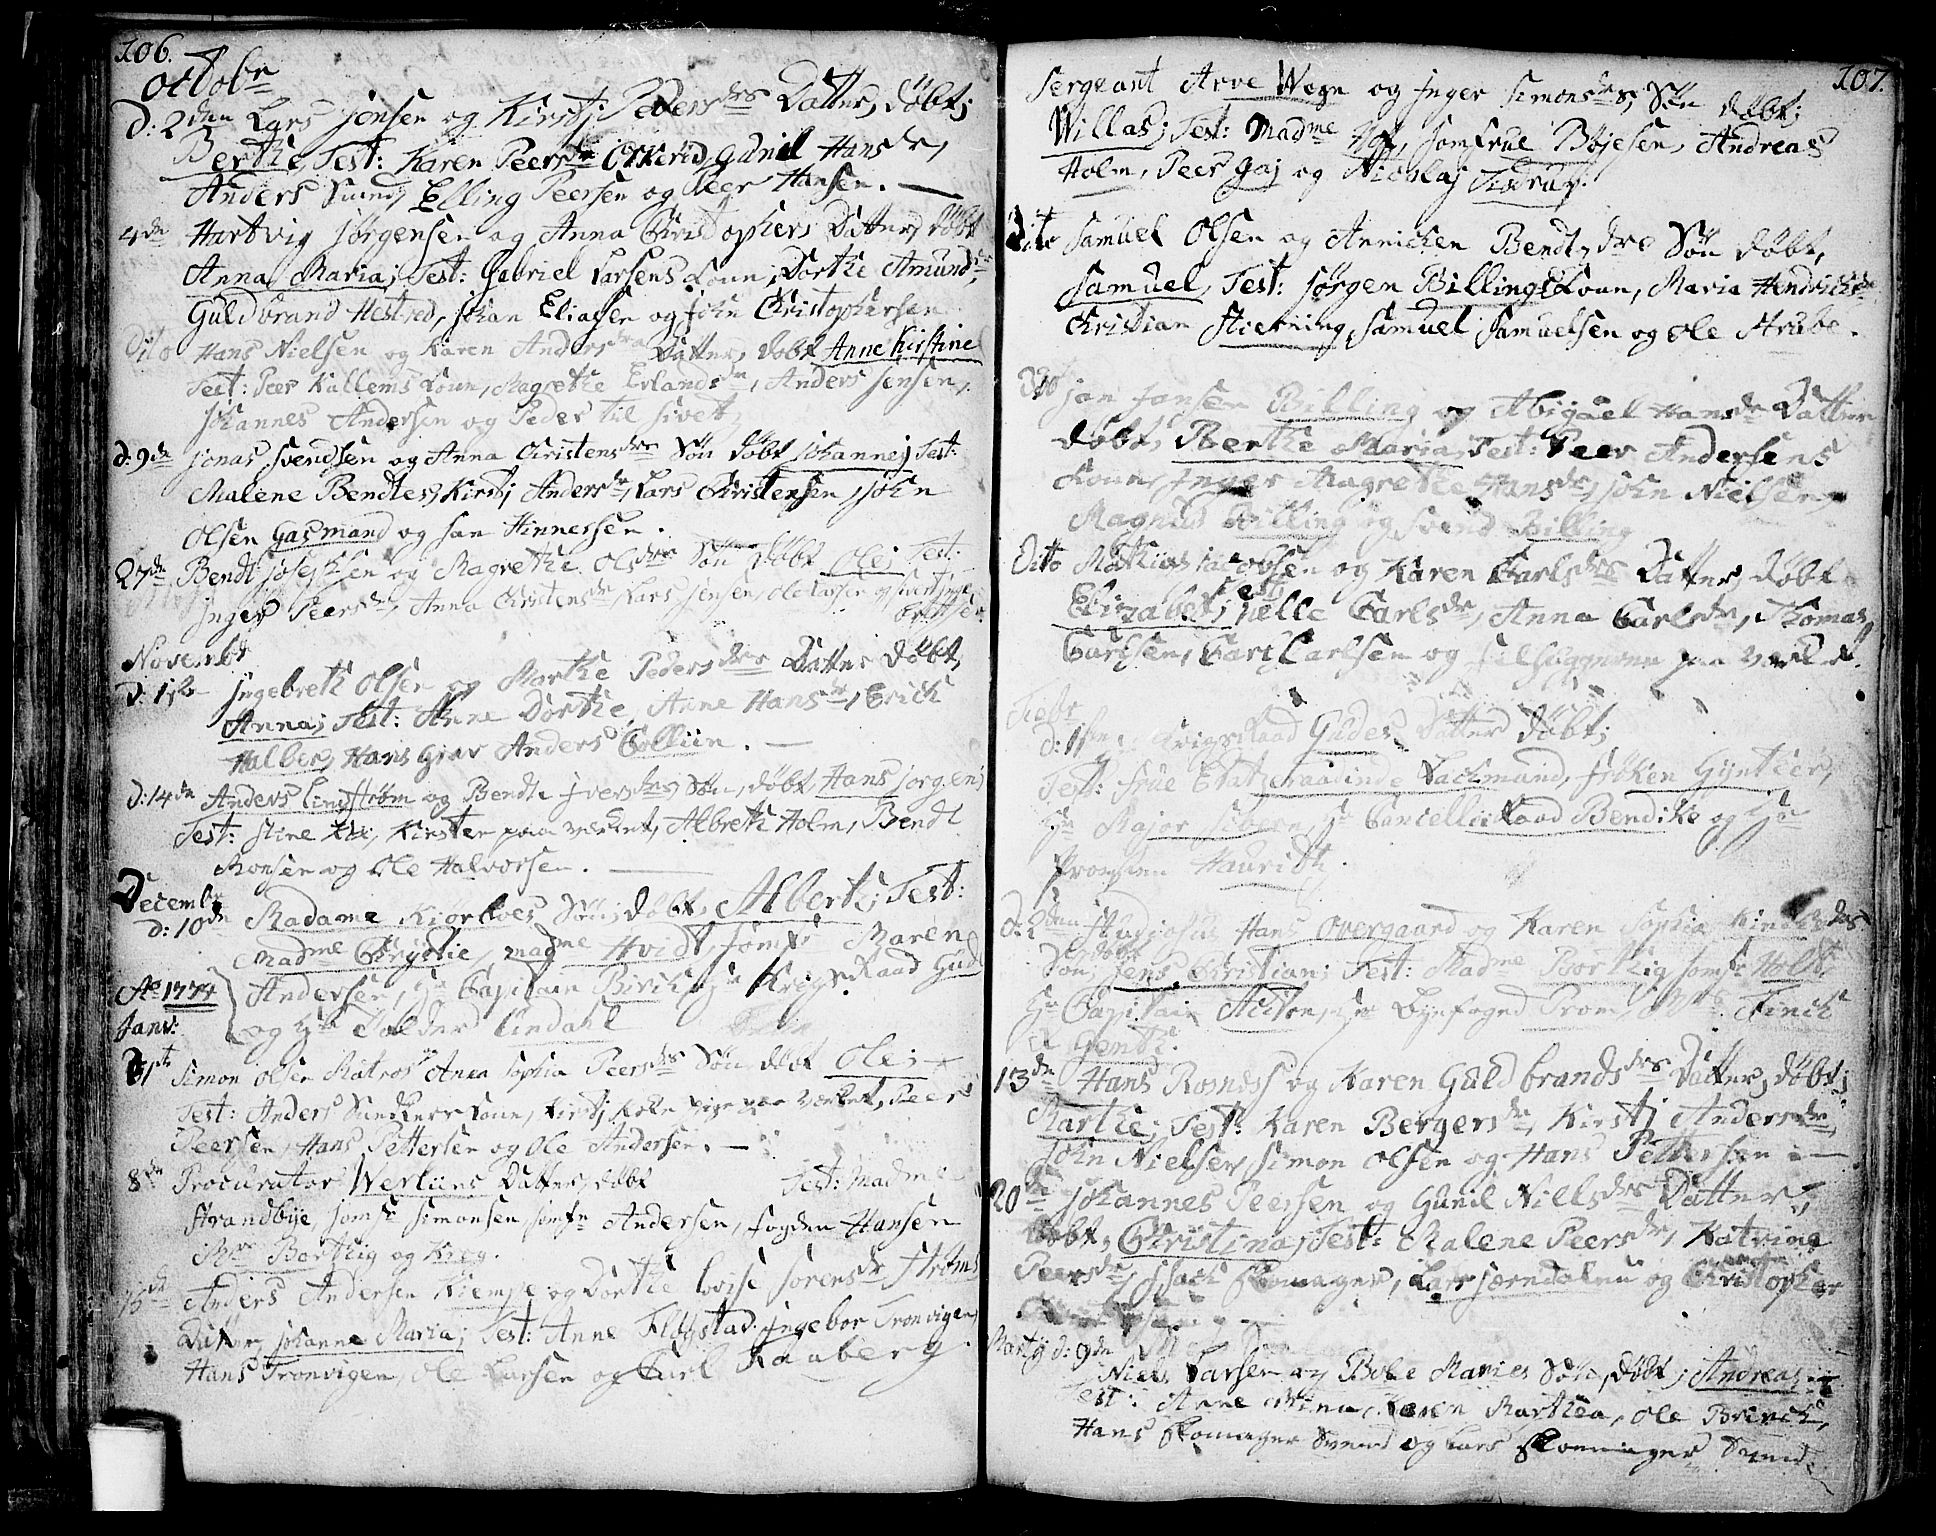 106.
Octobr
D: 2den Lars Jensen og Kirstj Pedersdrs Datter, døbt;
Berthe, Test: Karen Peersdr Orkerid, Gunil Hansdr,
Anders Sund, Elling Peersen og Peer Hansen. —
4de Hartvig Jørgensen og Anna Christophers Datter, døbt
Anna Maria; Test: Gabriel Larsens Konn; Dorthe Amundsdr,
Guldbrand Hestred, Johan Eliasen og John Christophersen
Dito Hans Nielsen og Karen Andersdra Datter, døbt Anne Kirstine
Test: Peer Kullems Konn, Magrethe Erlandsdr, Anders Jensen,
Johannes Andersen og Peder til Sivet,
d: 9de Jonas Svendsen og Anna Christensdrs Søn døbt Johannes; Test:
Malene Bendtes, Kirstj Andersdr, Lars Christensen, John
Olsen Gasmand og Jan Hinnessen.
27de Bendt Josephsen og Magrethe Olsdrs Søn døbt Ole; Test:
Inger Peersdr, Anna Christensdr, Lars Jensen, Ole Larsen og
Novembr
D: 1ste Ingebreth Olsen og Marthe Pedersdrs Datter døbt,
Anna; Test: Anne Dorthe, Anne Hansdr, Erick
Halber, Hans Giør Anders Colliin. —
d: 14de Anders Lindstrøm og Bendte Iversdrs Søn, døbt Hans Jørgen;
Test: Stine Kirsten paa Værket, Albreth Holm, Bendt
Monsen og Ole Halvorsen. —
Decembr
d: 10de Madame Kiørboes Søn; døbt, Alberth; Test:
Madme Chrystie, Madme Hvidt, Jomfr Maren
Andersen, Hr Capitain Birch, Hr KrigsRaad Gude
Ao 1774 og Hr Lindahl
Janv:
d 1ste Simon Olsen Matros Anna Sophia Peersdrs Søn døbt Ole; —
Test: Anders Sundkers Konn, Kirstj Koke pige paa Værket, Peer
Peersen, Hans Pettersen og Ole Andersen. —
8de Procurator Werliins Datter, døbt Test: Madme
Strandbye, Jomfr Simonsen, Jomfr Andersen, Fogden Hansen
Mr Borthig og Krog.
Anders Andersen Kiempe og Dorthe Lovise Sørensdr Strøms
Datter, Johanne Maria; Test: Anne Fløystad. Ingebor Tronvigen,
Hans Tronvigen, Ole Larsen og Carl Raaberg.
107.
Sergeant Arve Wegn og Inger Simonsdrs, Søn døbt;
Willas; Test: Madme Jomfrue Bøjesen, Andreas
Holm, Peer Gaj og Nicolaj Tisdrup.
Dito Samuel Olsen og Annichen Bendtsdrs Søn døbt,
Samuel, Test: Jørgen Billings Konn, Maria Hendrichsdr
Christian Stierning, Samuel Samuelsen og Ole Strube.
Dito Jan Jansen Billing og Abigael Hansdr Datter
døbt, Berthe Maria, Test: Peer Andersens
Konn, Inger Magrethe Hansdr, John Nielsen,
Magnus Billing og Svend Billing
Dito Mathias Jacobsen og Karen Carlsdrs Datter, døbt
Elizabet; Test: Helle Carlsdr, Anna Carlsdr, Thomas
Carlsen, Carl Carlsen og paa Værket.
Febr
d: 1ste KrigsRaad Gudes Datter døbt;
Test: Frue Etatzraadinde Lachmand, Frøken Gynther,
Hr Major Hr CancelliiRaad Bendike og Hr
Provsten Hauridt.
d: 2den Studiosus Hans Overgaard og Karen Sophia
Søn; døbt Jens Christian; Test: Madme Borthig Jomfr Holst,
Hr Capitain Aldson, Hr Byefoged Prom, Finch
13de Hans Rosness og Karen Guldbrandsdrs Datter, døbt;
Marthe; Test: Karen Bergersdr, Kirstj Andersdr,
John Nielsen, Simon Olsen og Hans Pettersen —
20de Johannes Peersen og Gunil Nillsdrs Datter,
døbt, Christina; Test: Malene Peersdr, Katrine
Peersdr, Isach Skomager, Lars Jærndalen og Christopher
Martij d: 9de
Niels Larsen og Bole Maries Søn, døbt; Andreas;
Test: Anne Mina, Karen Marthea, Ole Brinch,
Hans Skomager Svend og Lars Skomager Svend.